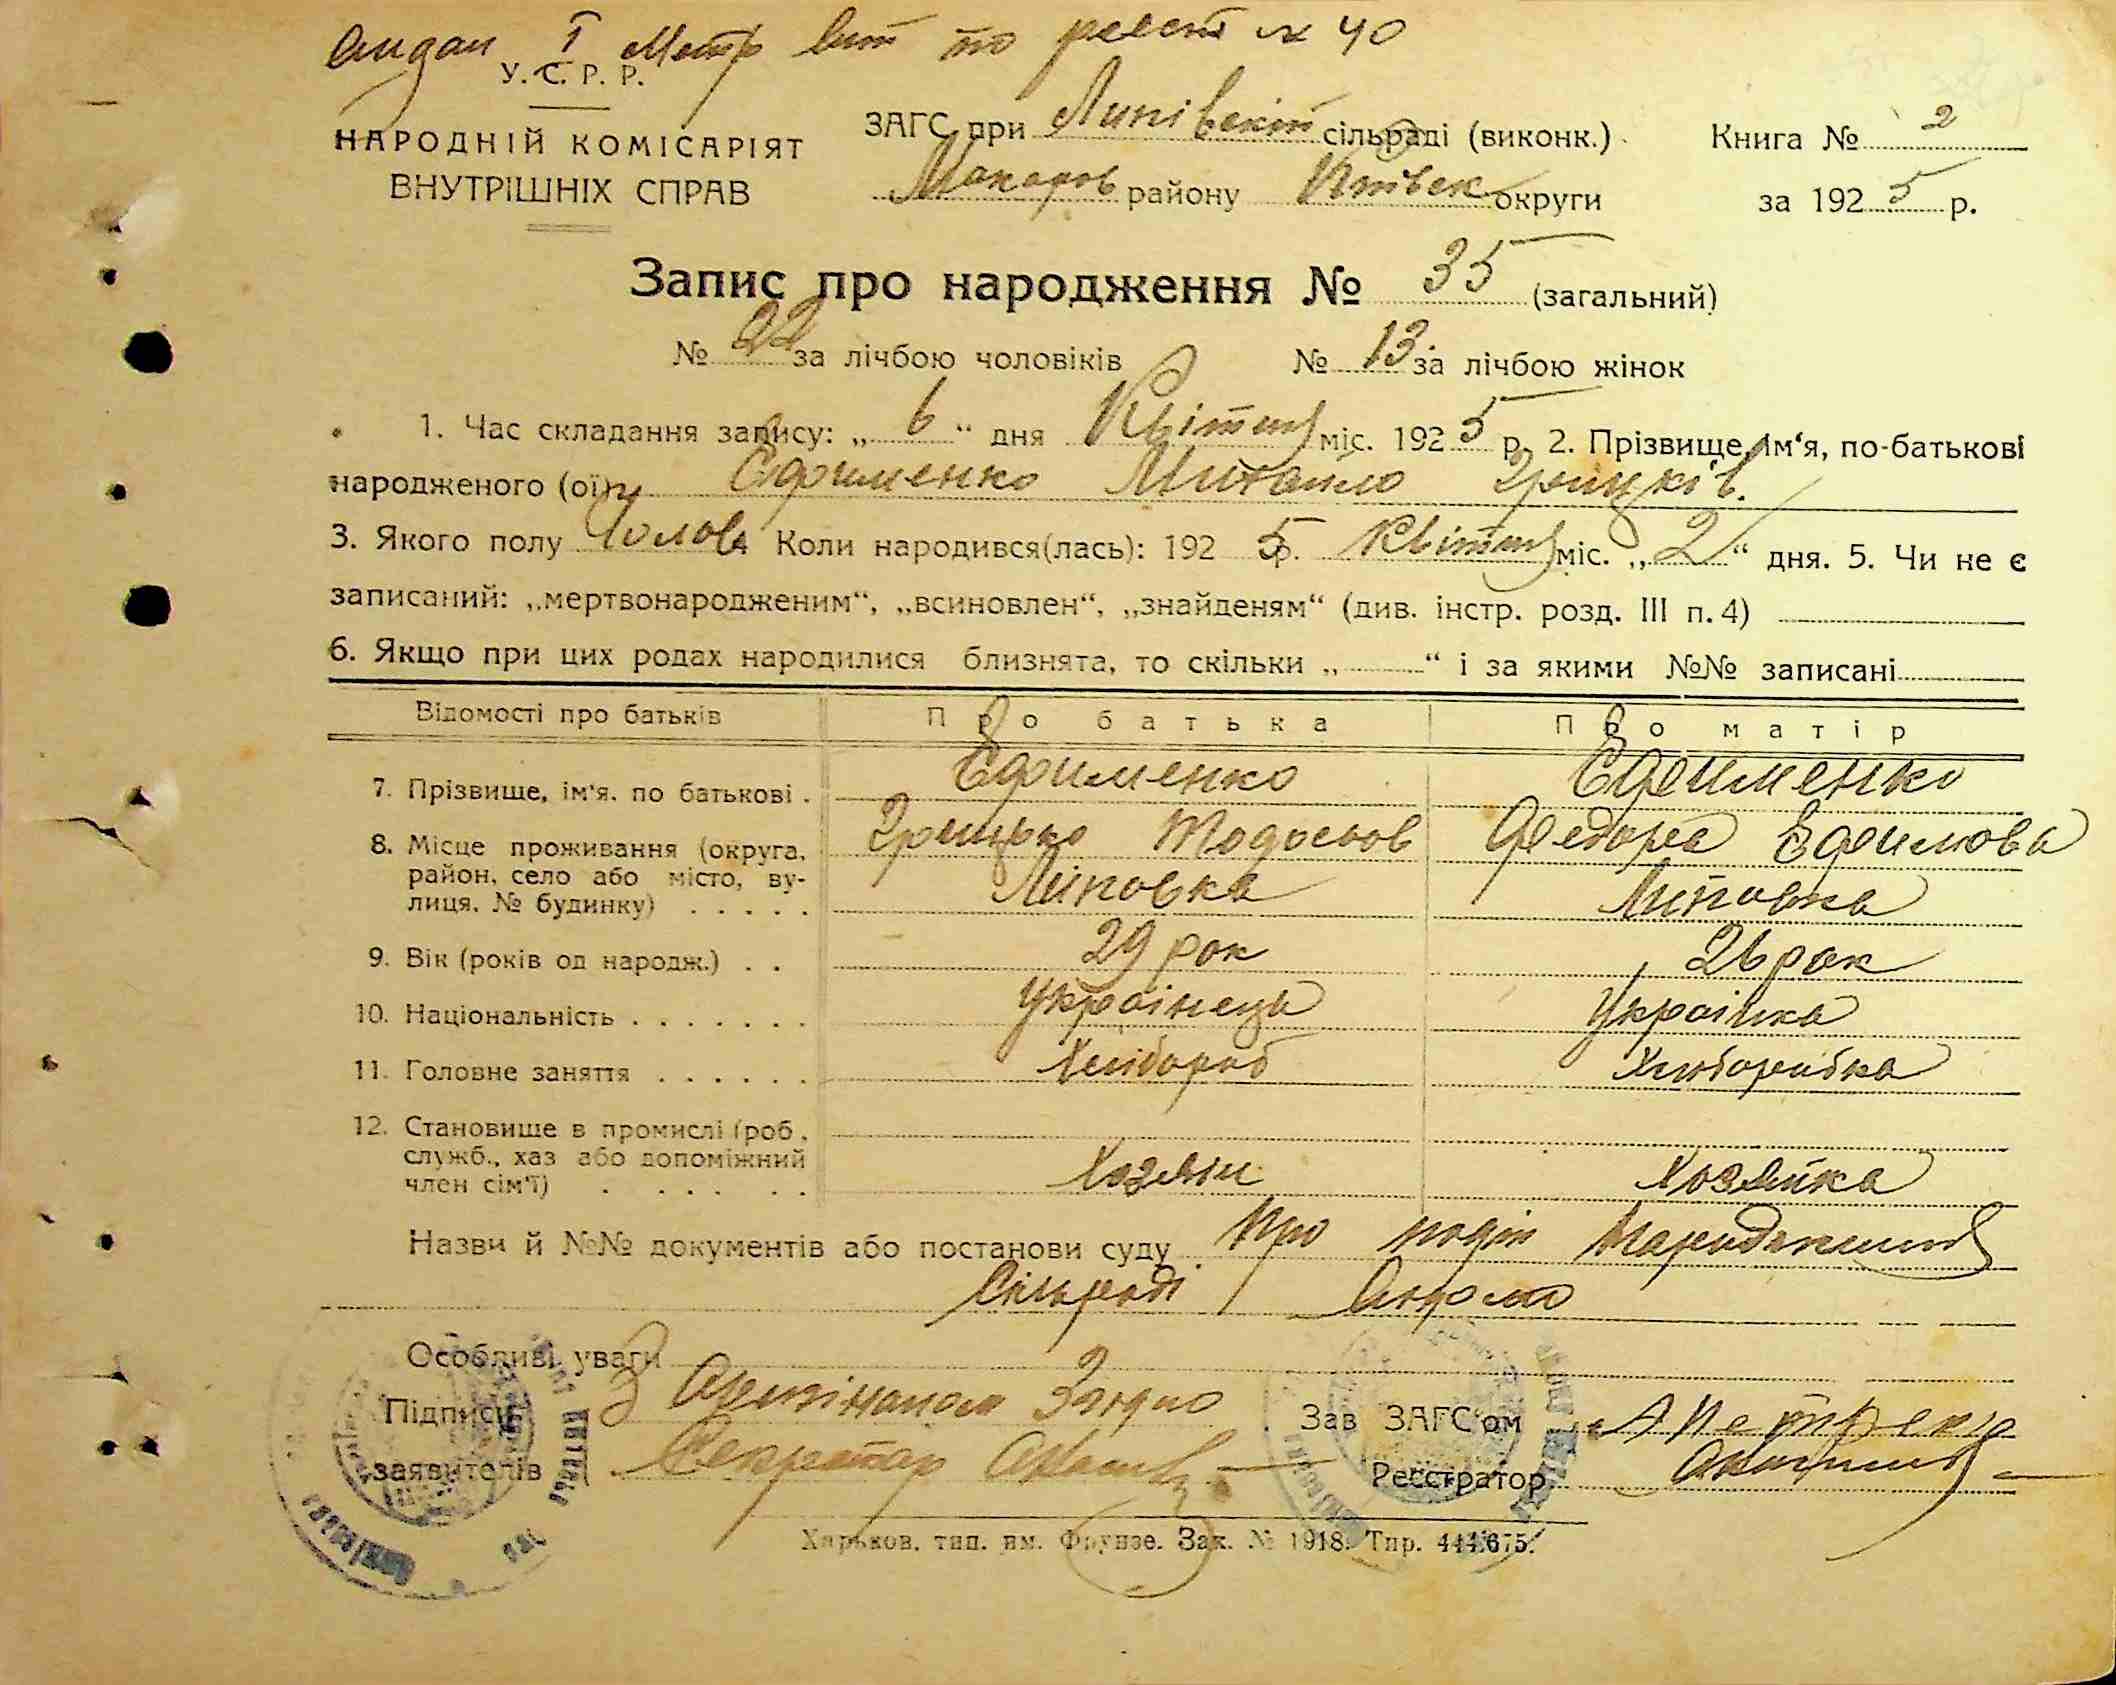 Видан I Метр вит по реест № 40
У. С. Р. Р.
НАРОДНІЙ КОМІСАРІЯТ
ВНУТРІШНІХ СПРАВ
ЗАГС при Липівскій сільраді (виконк.)
Макаров району Київск округи
Книга № 2
за 1925 р.
Запис про народження № 35 (загальний)
№ 22 за лічбою чоловіків № 13 за лічбою жінок
1. Час складання запису: „ 6 “ дня Квітня міс. 1925 р. 2. Прізвище, ім‘я, по-батькові
народженого (ої) Єфименко Михайло Грицків.
3. Якого полу Чолов. Коли народився(лась): 1925 р. Квітня міс. „ 2 “ дня. 5. Чи не є
записаний: „мертвонародженим“, „всиновлен“, „знайденям“ (див. інстр. розд. III п. 4)
6. Якщо при цих родах народилися близнята, то скільки „ “ і за якими №№ записані
Відомості про батьків Про батька Про матір
7. Прізвище, ім‘я. по батькові . Єфименко Єфименко
8. Місце проживання (округа, Грицько Тодосьов Федора Єфимова
район, село або місто, ву-
лиця, № будинку) . . . . . Липовка Липовка
9. Вік (років од народж.) . . 29 рок 26 рок
10. Національність . . . . . . . Українець Українка
11. Головне заняття . . . . . . Хлібороб Хліборобка
12. Становище в промислі (роб.,
служб., хаз або допоміжний
член сім‘ї) . . . . . . Хозяін Хозяйка
Назви й №№ документів або постанови суду Про подію
Сільраді
Особливі уваги
Підписи З Оригіналом Згідно
заявителів Секретар
Зав ЗАГС‘ом А Петренко
Реєстратор
Харьков. тип. им. Фрунзе. Зак. № 1918. Тир. 444.675.